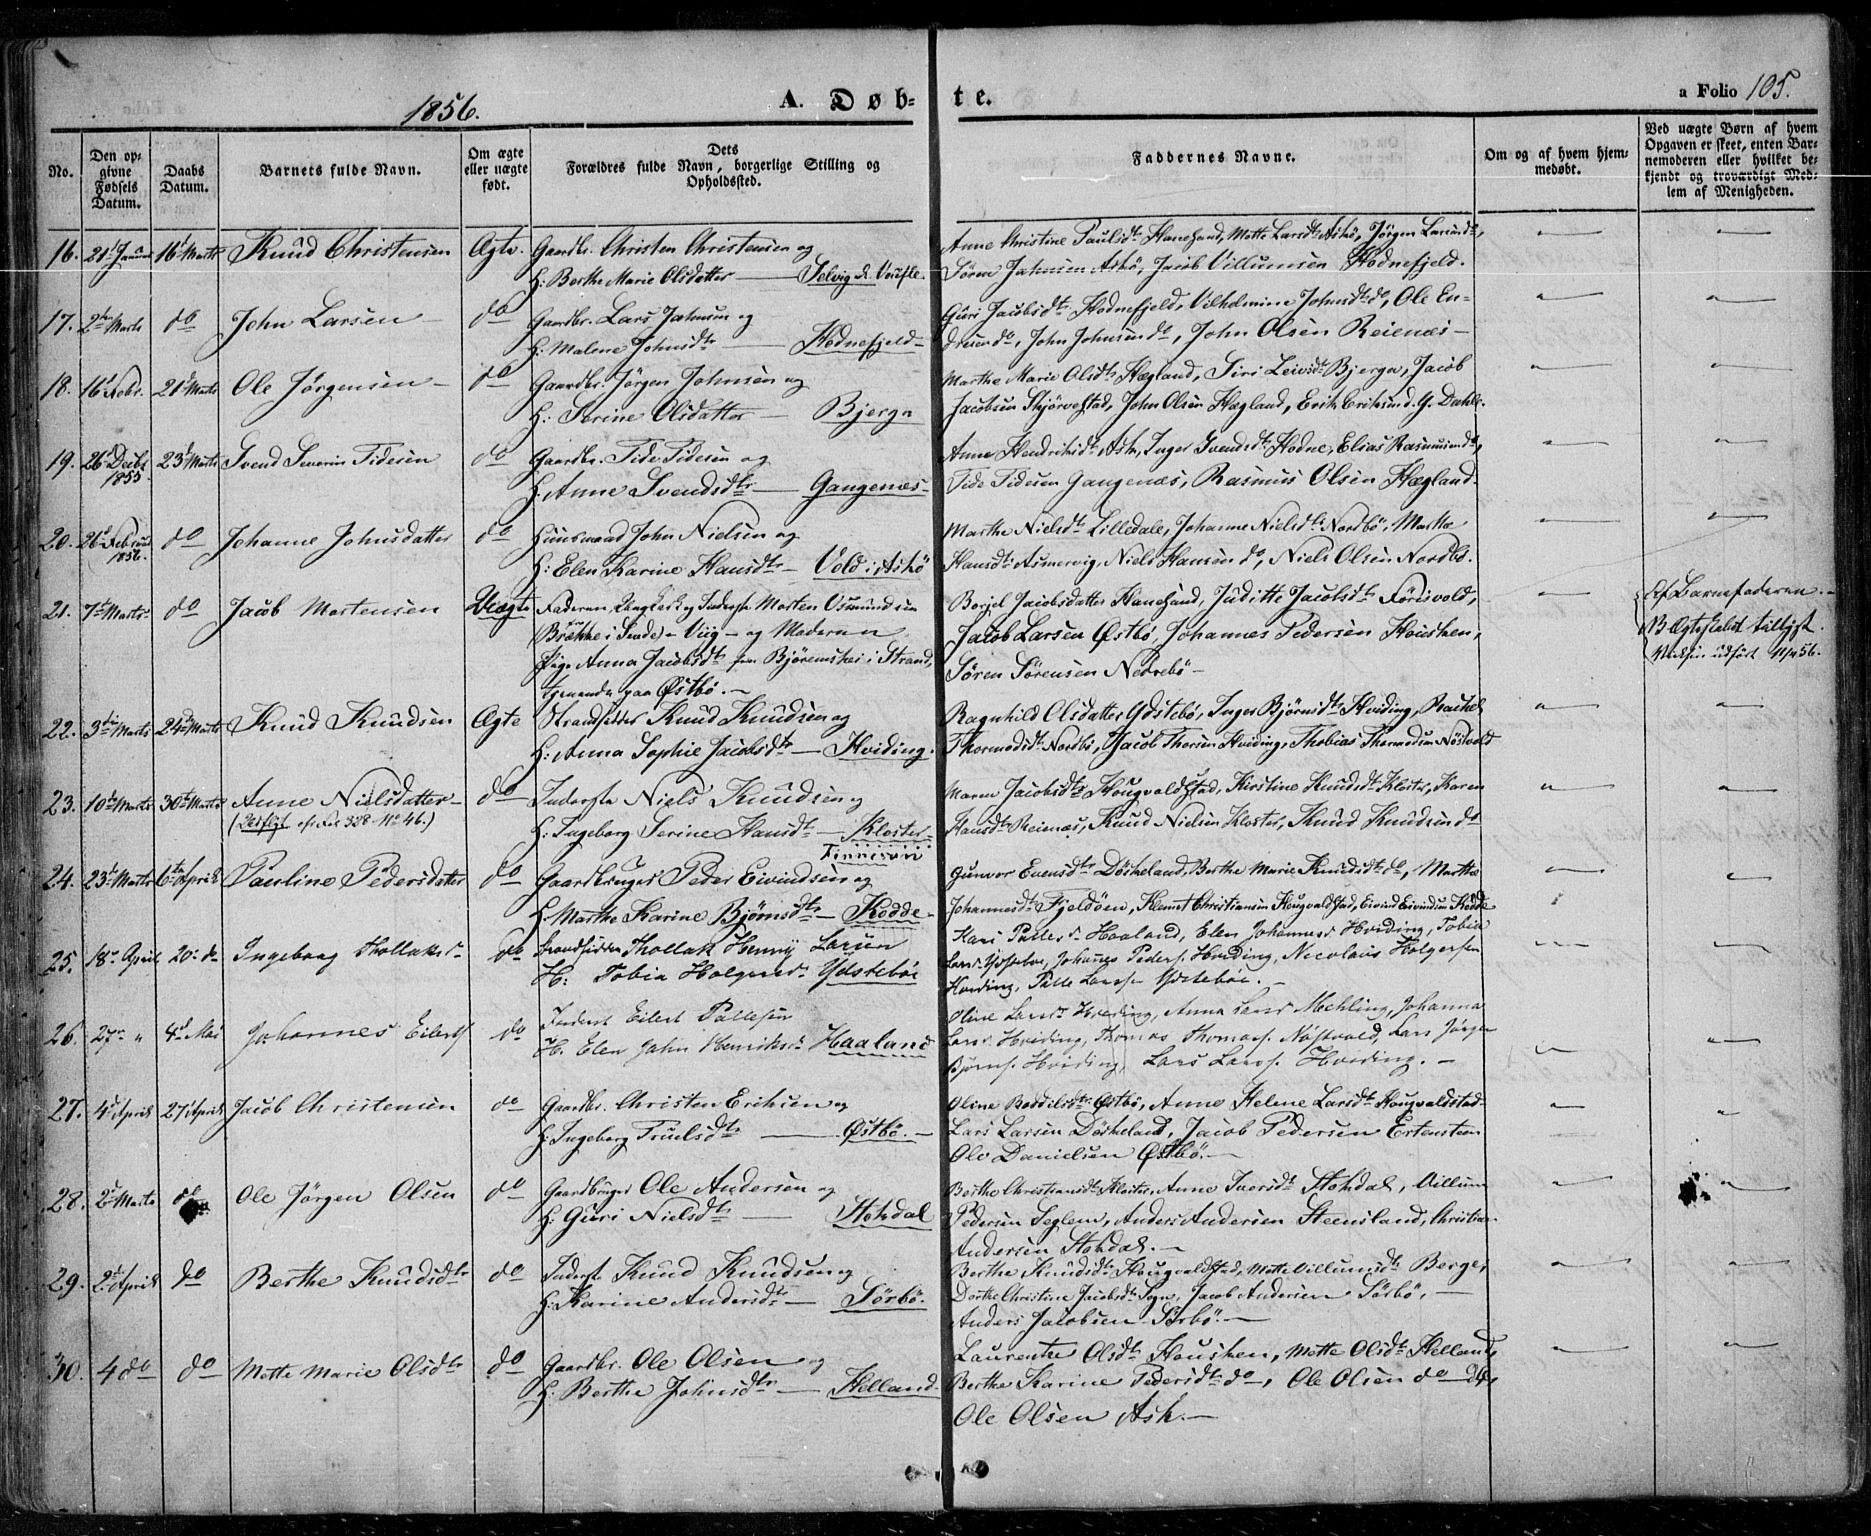 1856.
A. Døb-
te.
a Folio 105.
No.
Den op-
givne
Fødsels
Datum.
Daabs
Datum.
Barnets fulde Navn.
Om ægte
eller uægte
født.
Dets
Forældres fulde Navn, borgerlige Stilling og
Opholdssted.
Faddernes Navne.
Om og af hvem hjem-
medøbt.
Ved uægte Børn af hvem
Opgaven er skeet, enten Bar-
nemoderen eller hvilket be-
kjendt og troværdigt Med-
lem af Menigheden.
16. 21 16 Marts Knud Christensen Ægte. Gaardbr. Christen Christensen og
H: Berthe Marie Olsdatter — Selvig
Anne Christine Paulsdtr Hanesand, Mette Larsdtr Askø, Jørgen
Jahnsen Askø, Jacob Villumsen Hodnefjeld.
17. 2 Marts do John Larsen do Gaardbr. Lars Jahnsen og
H: Malene Johnsdtr — Hodnefjeld
Guri Jacobsdtr Hodnefjeld, Vilhelmine Johnsdtr do, Ole En-
dresen do, John Johnsen do, John Olsen Reienæs —
18. 16 Febr. 21 Marts Ole Jørgensen do Gaardbr. Jørgen Johnsen og
H: Serine Olsdatter — Bjerga
Marthe Marie Olsdtr Hægland, Siri Leivsdtr Bjerga, Jacob
Jacobsen Skjørvestad, John Olsen Hægland, Erik Eriksen d. G. Dahle.
19. 26 Decbr 1855. 23 Marts Svend Severin Tidesen do Gaardbr. Tide Tidesen og
H: Anne Svendsdtr — Gangenæs
Anne Hendriksdtr Ask, Inger Svendsdtr Hodne, Elias Rasmussen do,
Tide Tidesen Gangenæs, Rasmus Olsen Hægland.
20. 26 Februar 1856. do Johanne Johnsdatter do Huusmand John Nielsen og
H: Elen Karine Hansdtr — Vold i Askø
Marthe Nielsdtr Lilledale, Johanne Nielsdtr Nordbø, Marthe
Hansdtr Asmervig, Niels Hansen do, Niels Olsen Nordbø.
21. 7 Marts do Jacob Mortensen Uægte Faderen, Ungkarl og Inderste Morten Osmundsen
(Brække i Sande) – Viig – og Moderen
Pige Anna Jacobsdtr fra Bjørenskei i Strand,
tjenende paa Østbø. —
Borjel Jacobsdatter Hanesand, Juditte Jacobsdtr Førisvold,
Jacob Larsen Østbø, Johannes Pedersen Housken,
Søren Sørensen Nedrebø —
Af Barnefaderen. —
Ægteskabet tillyst.
22. 3 Marts 24 Marts Knud Knudsen Ægte Strandsidder Knud Knudsen og
H: Anna Sophie Jacobsdtr — Hviding.
Ragnhild Olsdatter Ydstebø, Inger Bjørnsdtr Hviding, Rachel
Thormodsdtr Nordbø, Jacob Thorsen Hviding, Thobias Thormodsen Nøstvold
23. 10 Marts 30 Marts Anne Nielsdatter do Inderste Niels Knudsen og
(Udflyt. 328 No 46.)
H: Ingeborg Serine Hansdtr — Kloster
Maren Jacobsdtr Hougvaldstad, Kirstine Knudsdtr Kloster, Karen
Hansdtr Reienæs, Knud Nielsen Kloster, Knud Knudsen do
24. 23 Marts 6 April Pauline Pedersdatter do Gaardbruger Peder Eivindsen og
H: Marthe Karine Bjørnsdtr — Kodde
Gunvor Evensdtr Døskeland, Berthe Marie Knudsdtr do, Marthe
Johannesdtr Fjeldøen, Klemet Christiansen Hougvaldstad, Eivind Eivindsen Kodde
25. 18 April 20 do Ingeborg Thollaksdr do Strandsidder Thollak Henrij Larsen
H: Tobia Holgersdr Ydstebøe
Kari Pallesdr Haaland, Elen Johannesdr Hviding, Tobia
Larsdr Ydstebøe, Johannes Peders. Hviding, Nicolaus Holgersen
Hviding, Palle Larss. Ydstebøe. —
26. 27 " 4 Mai Johannes Eilerts. do Inderst Eilert Pallesen
H. Elen Jahn Henriksdr Haaland
Oline Larsdr Hviding, Anna Larsdr Mechling, Johanna
Larsdr Hviding, Thomas Thomass. Nøstvold, Lars Jørgen
Bjørns. Hviding, Lars Larss. Hviding. —
27. 4 April 27 April Jacob Christensen do Gaardbr. Christen Eriksen og
H: Ingeborg Truelsdtr — Østbø. —
Oline Boddilsdtr Østbø, Anne Helene Larsdtr Hougvaldstad
Lars Larsen Døskeland, Jacob Pedersen Ertensteen
Ole Danielsen Østbø. —
28. 2 Marts do Ole Jørgen Olsen do Gaardbruger Ole Andersen og
H: Guri Nielsdtr — Stokdal
Berthe Christiansdtr Kloster, Anne Iversdtr Stokdal, Villum
Pedersen Seglem, Anders Andersen Steensland, Christian
Andersen Stokdal. —
29. 2 April do Berthe Knudsdtr do Inderste Knud Knudsen og
H: Karine Andersdtr — Sørbø.
Berthe Knudsdtr Hougvaldstad, Mette Villumsdtr Berge,
Dorthe Christine Jacobsdtr Sogn, Jacob Andersen Sørbø, —
Anders Jacobsen Sørbø. —
30. 4 do do Mette Marie Olsdtr do Gaardbr. Ole Olsen og
H: Berthe Johnsdtr — Helland
Laurentse Olsdtr Housken, Mette Olsdtr Helland,
Berthe Karine Pedersdtr do, Ole Olsen do
Ole Olsen Ask. —